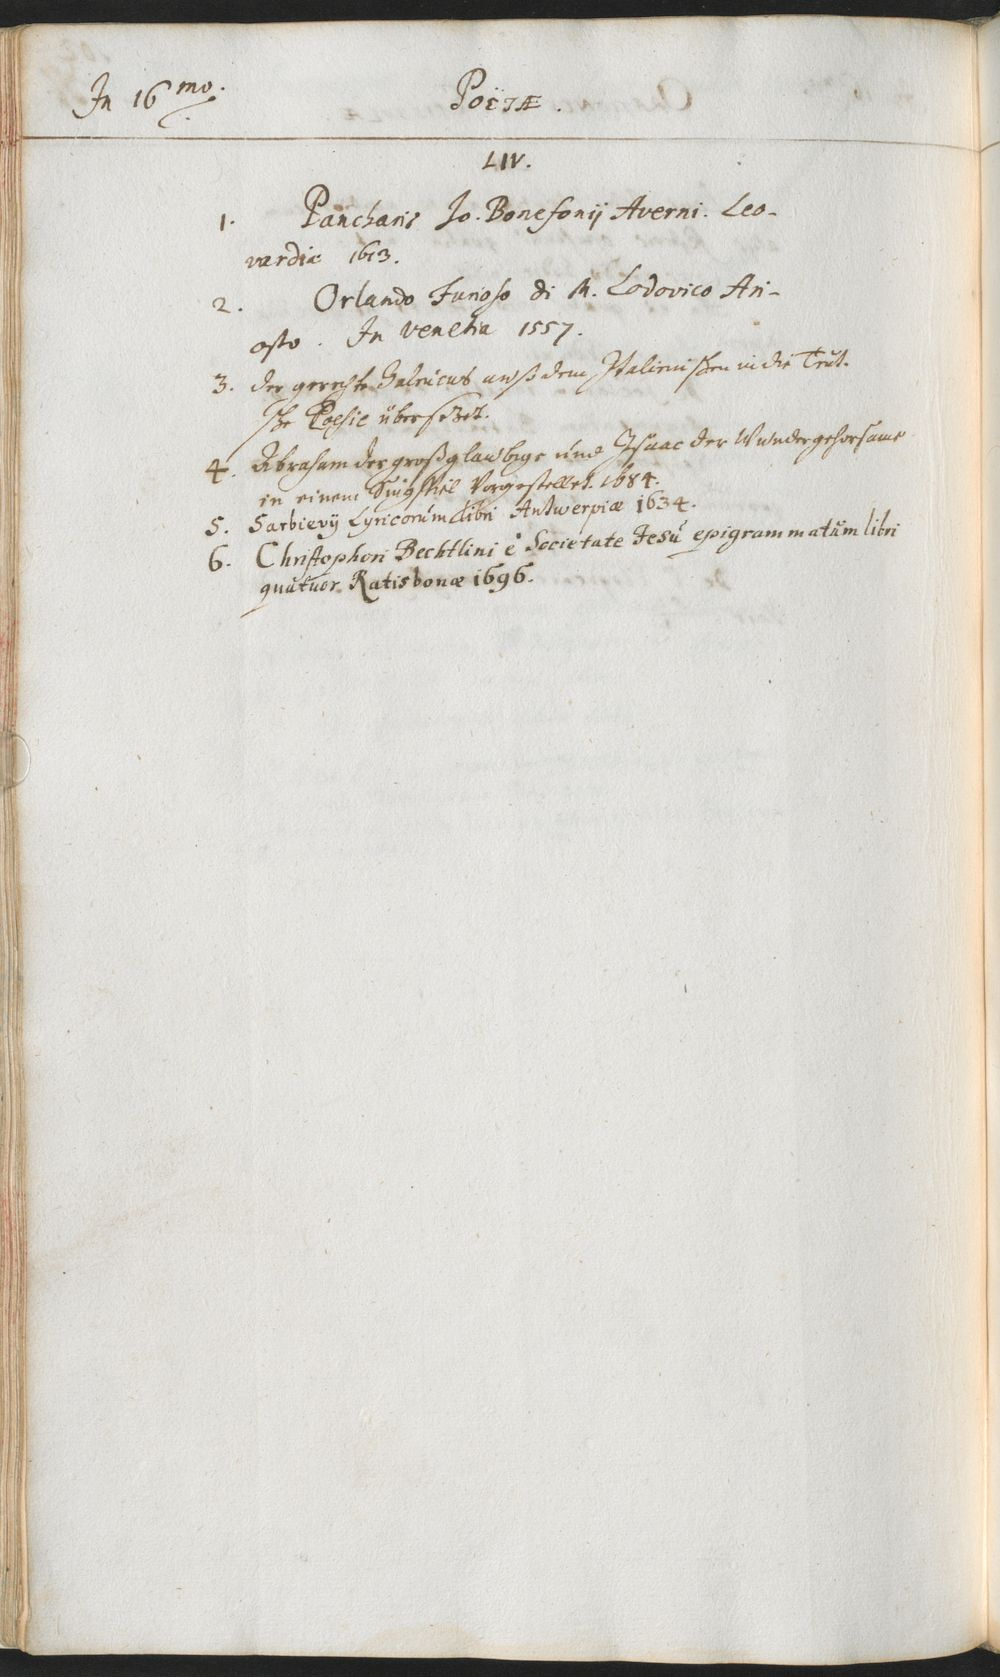 In 16mo.
POËTÆ.
LIV.
1. Pancharis Jo. Bonefonij Averni. Leo-
vardiæ 1613.
2. Orlando Furioso di M. Lodovico Ari-
osto. In Venetia 1557.
3. der gerechte Saleucus auß dem Italienischen in die Teut.
sche Poesie übersezet.
4. Abraham der großglaubige und Isaac der Wundergehorsame
in einem Singspiel Vorgestellet. 1684.
5. Sarbievij Lyricorum libri Antwerpiæ 1634.
6. Christophori Bechtlini è Societate Jesu epigrammatum libri
quatuor. Ratisbonæ 1696.